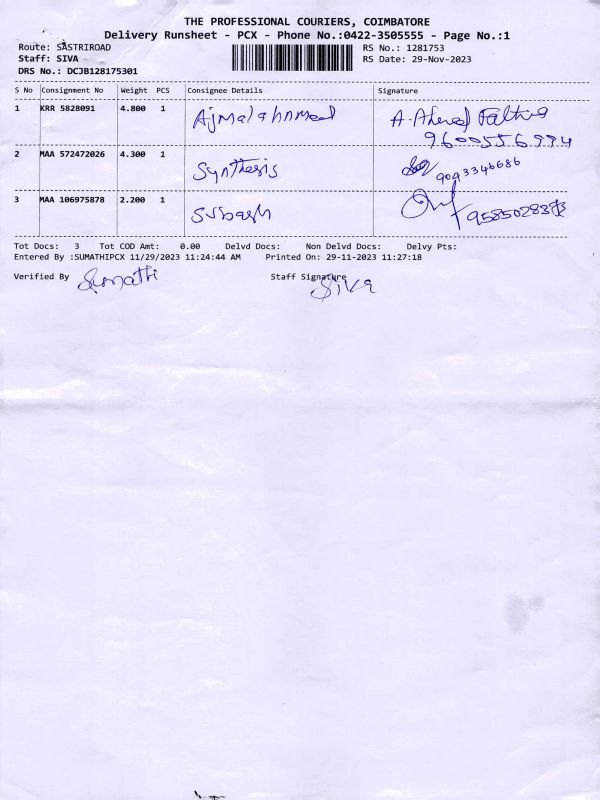 THE PROFESSIONAL COURIERS, COIMBATORE
Delivery Runsheet - PCX - Phone No.:0422-3505555 - Page No.:1
Route: SASTRIROAD
RS No.: 1281753
Staff: SIVA
RS Date: 29-Nov-2023
DRS No.: DCJB128175301
S No Consignment No Weight PCS Consignee Details Signature
1 KRR 5828091 4.800 1 Ajmalahmed A. Ahmed Fathima
9600556994
2 MAA 572472026 4.300 1 Synthesis 9043346686
3 MAA 106975878 2.200 1 Subash
Tot Docs: 3 Tot COD Amt: 0.00 Delvd Docs: Non Delvd Docs: Delvy Pts:
Entered By :SUMATHIPCX 11/29/2023 11:24:44 AM Printed On: 29-11-2023 11:27:18
Verified By Sumathi Staff Signature Siva